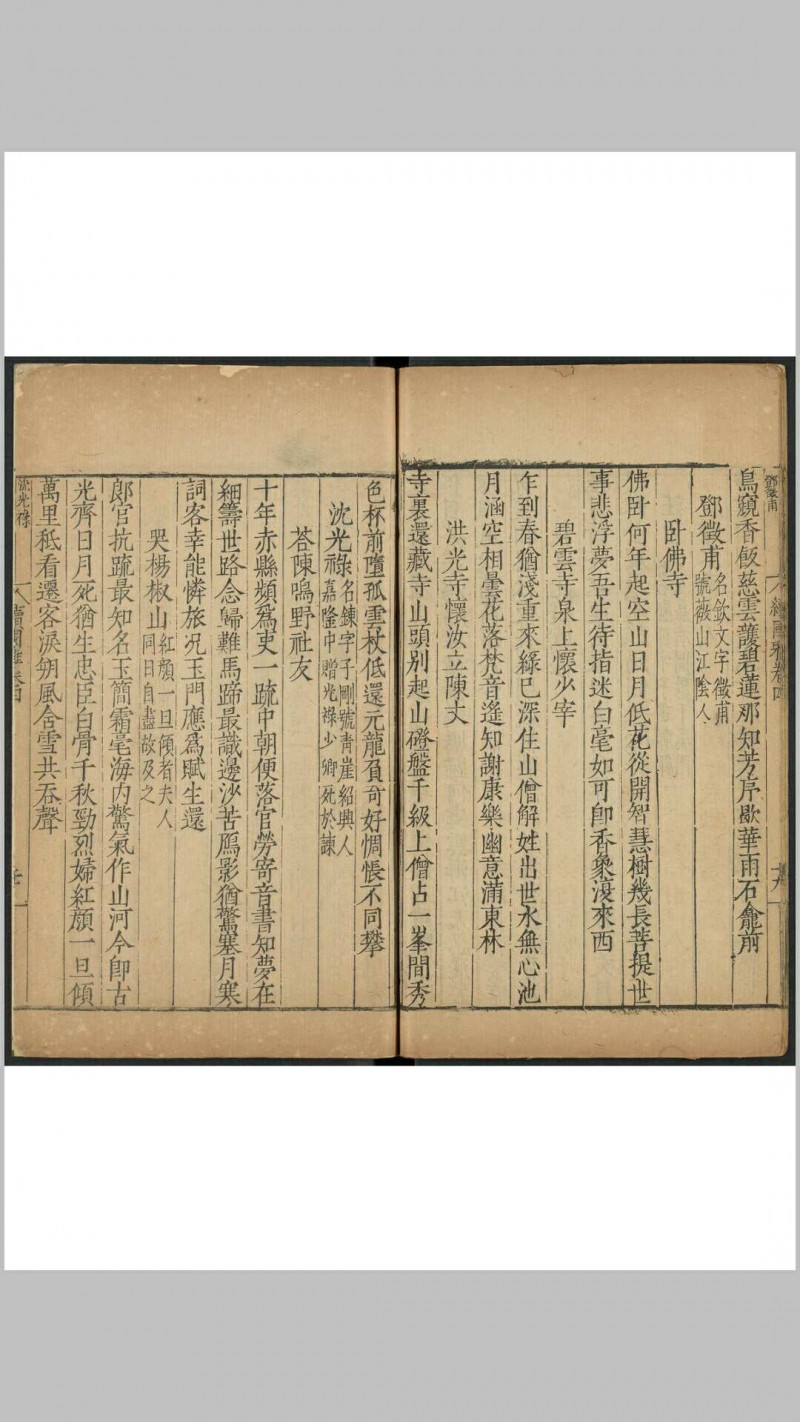 鄧徵甫
續國雅卷四
十九
鳥窺香飯慈雲護碧蓮那知芳序歇華雨石龕前
鄧徵甫名欽文字徵甫
號薇山江陰人
卧佛寺
佛卧何年起空山日月低花從開智慧樹幾長菩提世
事悲浮夢吾生待指迷白毫如可卽香象渡來西
碧雲寺泉上懷少宰
乍到春猶淺重來綠已深住山僧解姓出世水無心池
月涵空相曇花落梵音遙知謝康樂幽意滿東林
洪光寺懷汝立陳丈
寺裏還藏寺山頭别起山磴盤千級上僧占一峯間秀
色杯前墮孤雲杖低還元龍負奇好惆悵不同攀
沈光祿名鍊字子剛號靑崖紹興人
嘉隆中贈光祿少卿死於諫
荅陳鳴野社友
十年赤縣頻爲吏一疏中朝便落官勞寄音書知夢在
細籌世路念歸難馬蹄最識邊沙苦鴈影猶驚塞月寒
詞客幸能憐旅况玉門應爲賦生還
哭楊椒山紅顏一旦傾者夫人
同日自盡故及之
郞官抗疏最知名玉簡霜毫海内驚氣作山河今卽古
光齊日月死猶生忠臣白骨千秋勁烈婦紅顏一旦傾
萬里秪看遷客淚朔風舍雪共吞聲
沈光祿
續國雅卷四